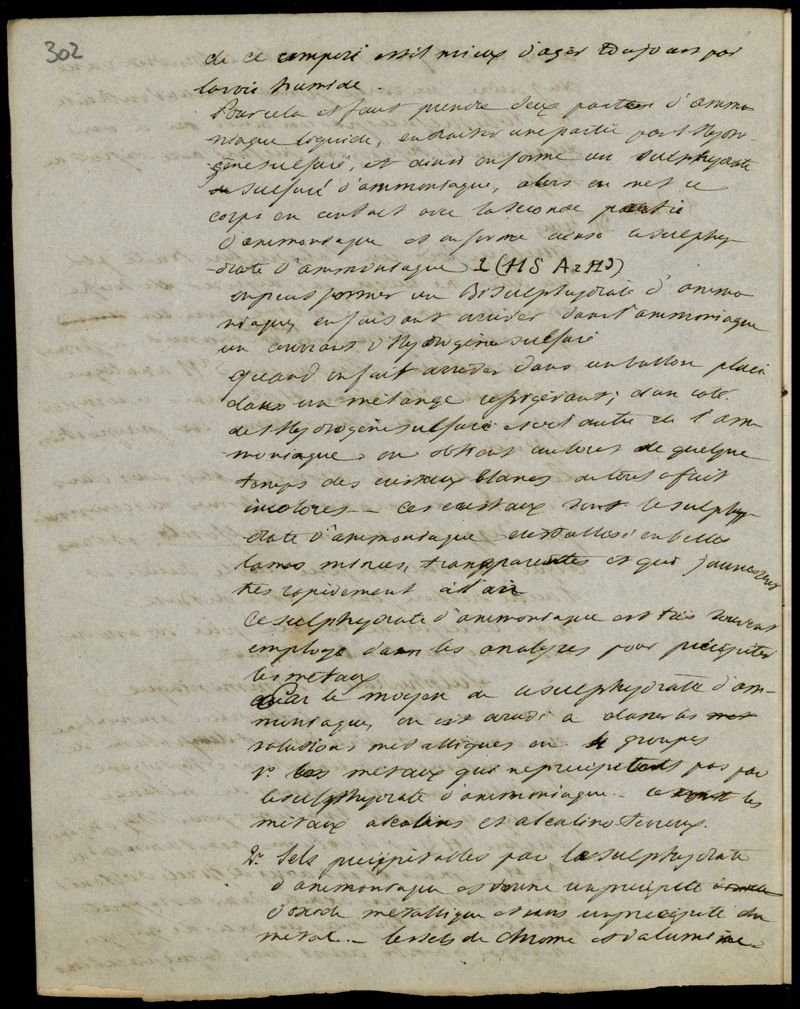 302
de ce composé est il mieux d'agir toujours par
la voie humide.
Pour cela il faut prendre deux parties d'ammo-
niaque liquide, en traiter une partie par l'hydro-
gène sulfuré, et ainsi on forme un sulphydrate
sulfuré d'ammoniaque, alors on met ce
corps en contact avec la seconde partie
d'ammoniaque et on forme ainsi le sulphy-
drate d'ammoniaque 2 (HS AzH3)
on peut former un Bisulphydrate d'ammo-
niaque, en faisant arriver dans l'ammoniaque
un courant d'hydrogène sulfuré
Quand on fait arriver dans un ballon placé
dans un mélange réfrigérant, d'un côté
de l'hydrogène sulfuré et de l'autre de l'am-
moniaque on obtient au bout de quelque
temps des cristaux blancs ou tout à fait
incolores - ces cristaux sont le sulphy-
drate d'ammoniaque cristallisé en belles
lames minces, transparentes et qui jaunissent
très rapidement à l'air
Ce sulphydrate d'ammoniaque est très souvent
employé dans les analyses pour précipiter
les métaux
Par le moyen de le sulphydrate d'am-
moniaque, on est arrivé à classer les
solutions métalliques en 4 groupes
1º les métaux qui ne précipitent pas par
le sulphydrate d'ammoniaque - ce sont les
métaux alcalins et alcalino terreux.
2º Sels précipitables par le sulphydrate
d'ammoniaque et donne un précipité
d'oxide métallique et un précipité du
métal - les sels de chrome et d'alumine